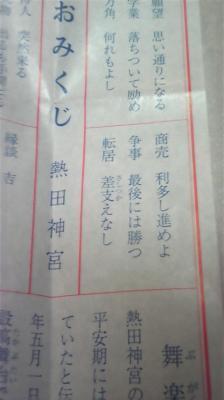 願望 思い通りになる
学業 落ちついて励め
方角 何れもよし
商売 利多し進めよ
争事 最後には勝つ
転居 差支えなし
さしつか
おみくじ 熱田神宮
突然来る
縁談 吉
舞楽
ぶが
熱田神宮の
平安期には
ていたと伝
年五月一日